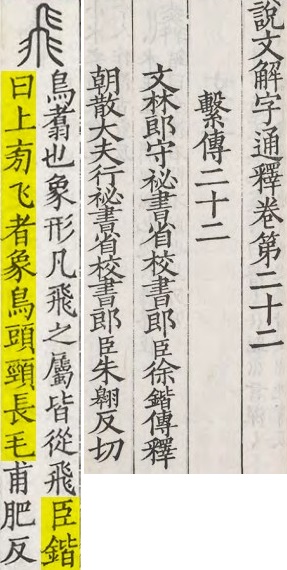 說文解字通釋卷第二十二
繫傳二十二
文林郎守祕書省校書郎臣徐鍇傳釋
朝散大夫行祕書省校書郎臣朱翱反切
飛
鳥翥也象形凡飛之屬皆從飛臣鍇
曰上旁飞者象鳥頭頸長毛甫肥反